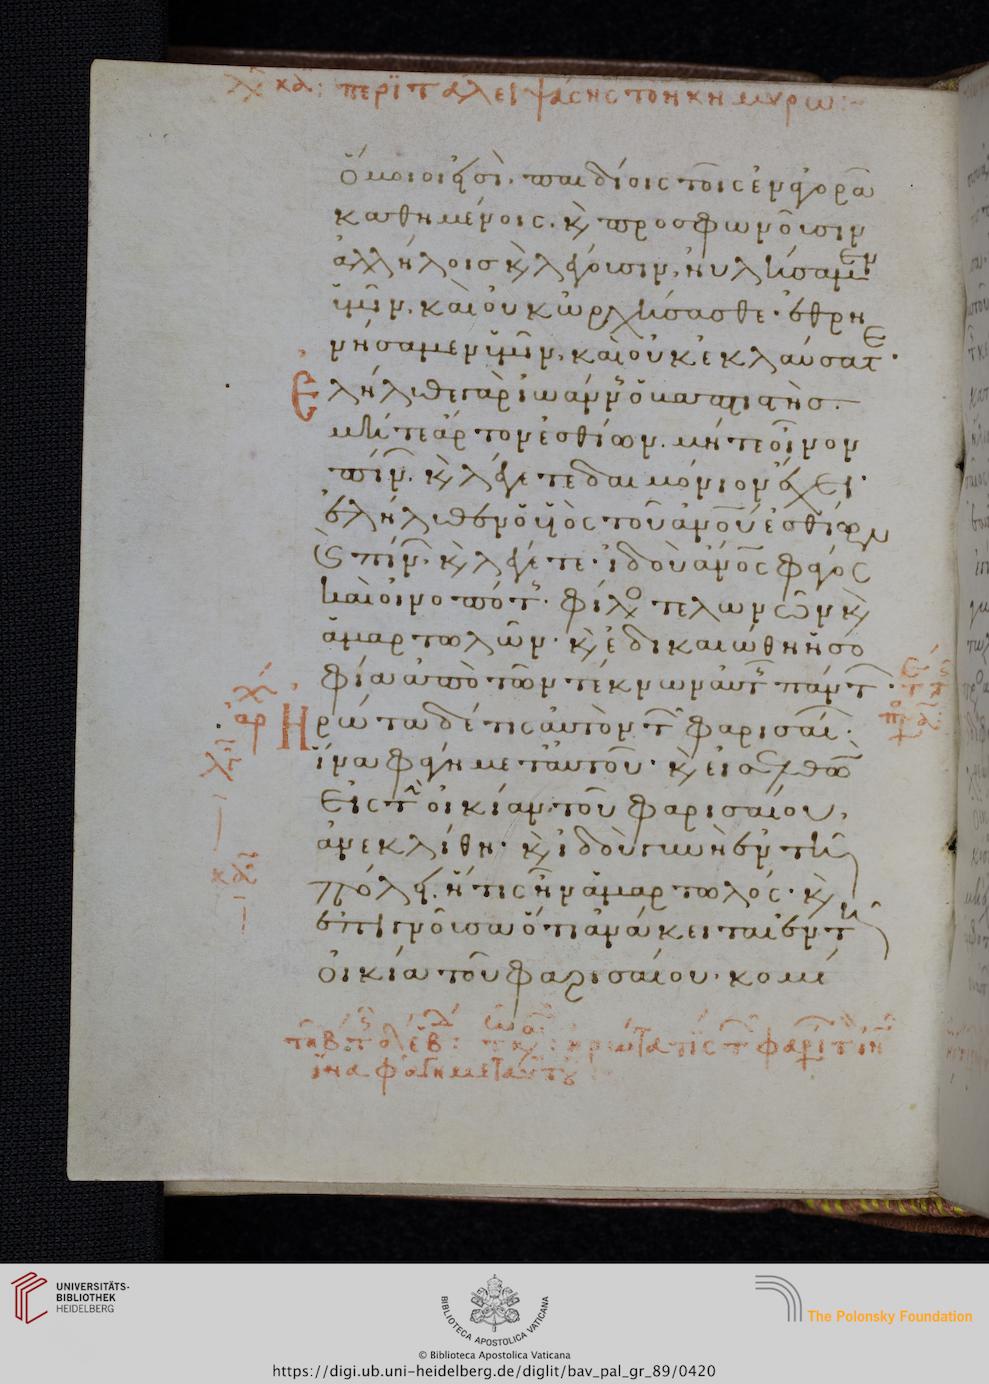 περὶ τ ἀλειψάσης τὸν κν μύρω:~
ὅμοιοι εἰσὶ. παιδίοις τοῖς ἐν ἀγορᾶ
καθημένοις. κ προσφωνοῦσιν
ἀλλήλοις κ λέγουσιν, ηὐλήσαμεν
ὑμῖν, καὶ οὐκ ὠρχήσασθε. ἐθρη
νήσαμεν ὑμῖν, καὶ οὐκ ἐκλαύσατε.
Ἐλήλυθε γὰρ ἰωάννης ὁ βαπτιστὴς.
μήτε ἄρτον ἐσθίων. μήτε οἶνον
πίνων. κ λέγετε δαιμόνιον ἔχει.
ἐλήλυθεν ὁ υἱὸς τοῦ ἀνου ἐσθίων
κ πίνων. κ λέγετε. ἰδοὺ ἀνος φάγος
καὶ οἰνοπότης. φίλος τελωνῶν κ
ἁμαρτωλῶν. κ ἐδικαιώθη ἡ σο
φία ἀπὸ τῶν τέκνων αὐτῆς πάντων.
Ἠρώτα δέ τις αὐτὸν τῶν φαρισαίων.
ἵνα φάγη μετ αὐτοῦ. κ εἰσελθὼν
εἰς τὴν οἰκίαν τοῦ φαρισαίου,
ἀνεκλίθη. κ ἰδοὺ γυνὴ ἐν τῆ
πόλει. ἥτις ἦν ἁμαρτωλός. κ
ἐπιγνοῦσα ὅτι ἀνάκειται ἐν τῆ
οἰκία τοῦ φαρισαίου. κομί
ἠρώτα τίς τ φαρι τ ιν
ἵνα φάγη μετ αὐτοῦ
UNIVERSITÄTS-
BIBLIOTHEK
HEIDELBERG
BIBLIOTECA APOSTOLICA VATICANA
The Polonsky Foundation
© Biblioteca Apostolica Vaticana
https://digi.ub.uni-heidelberg.de/diglit/bav_pal_gr_89/0420